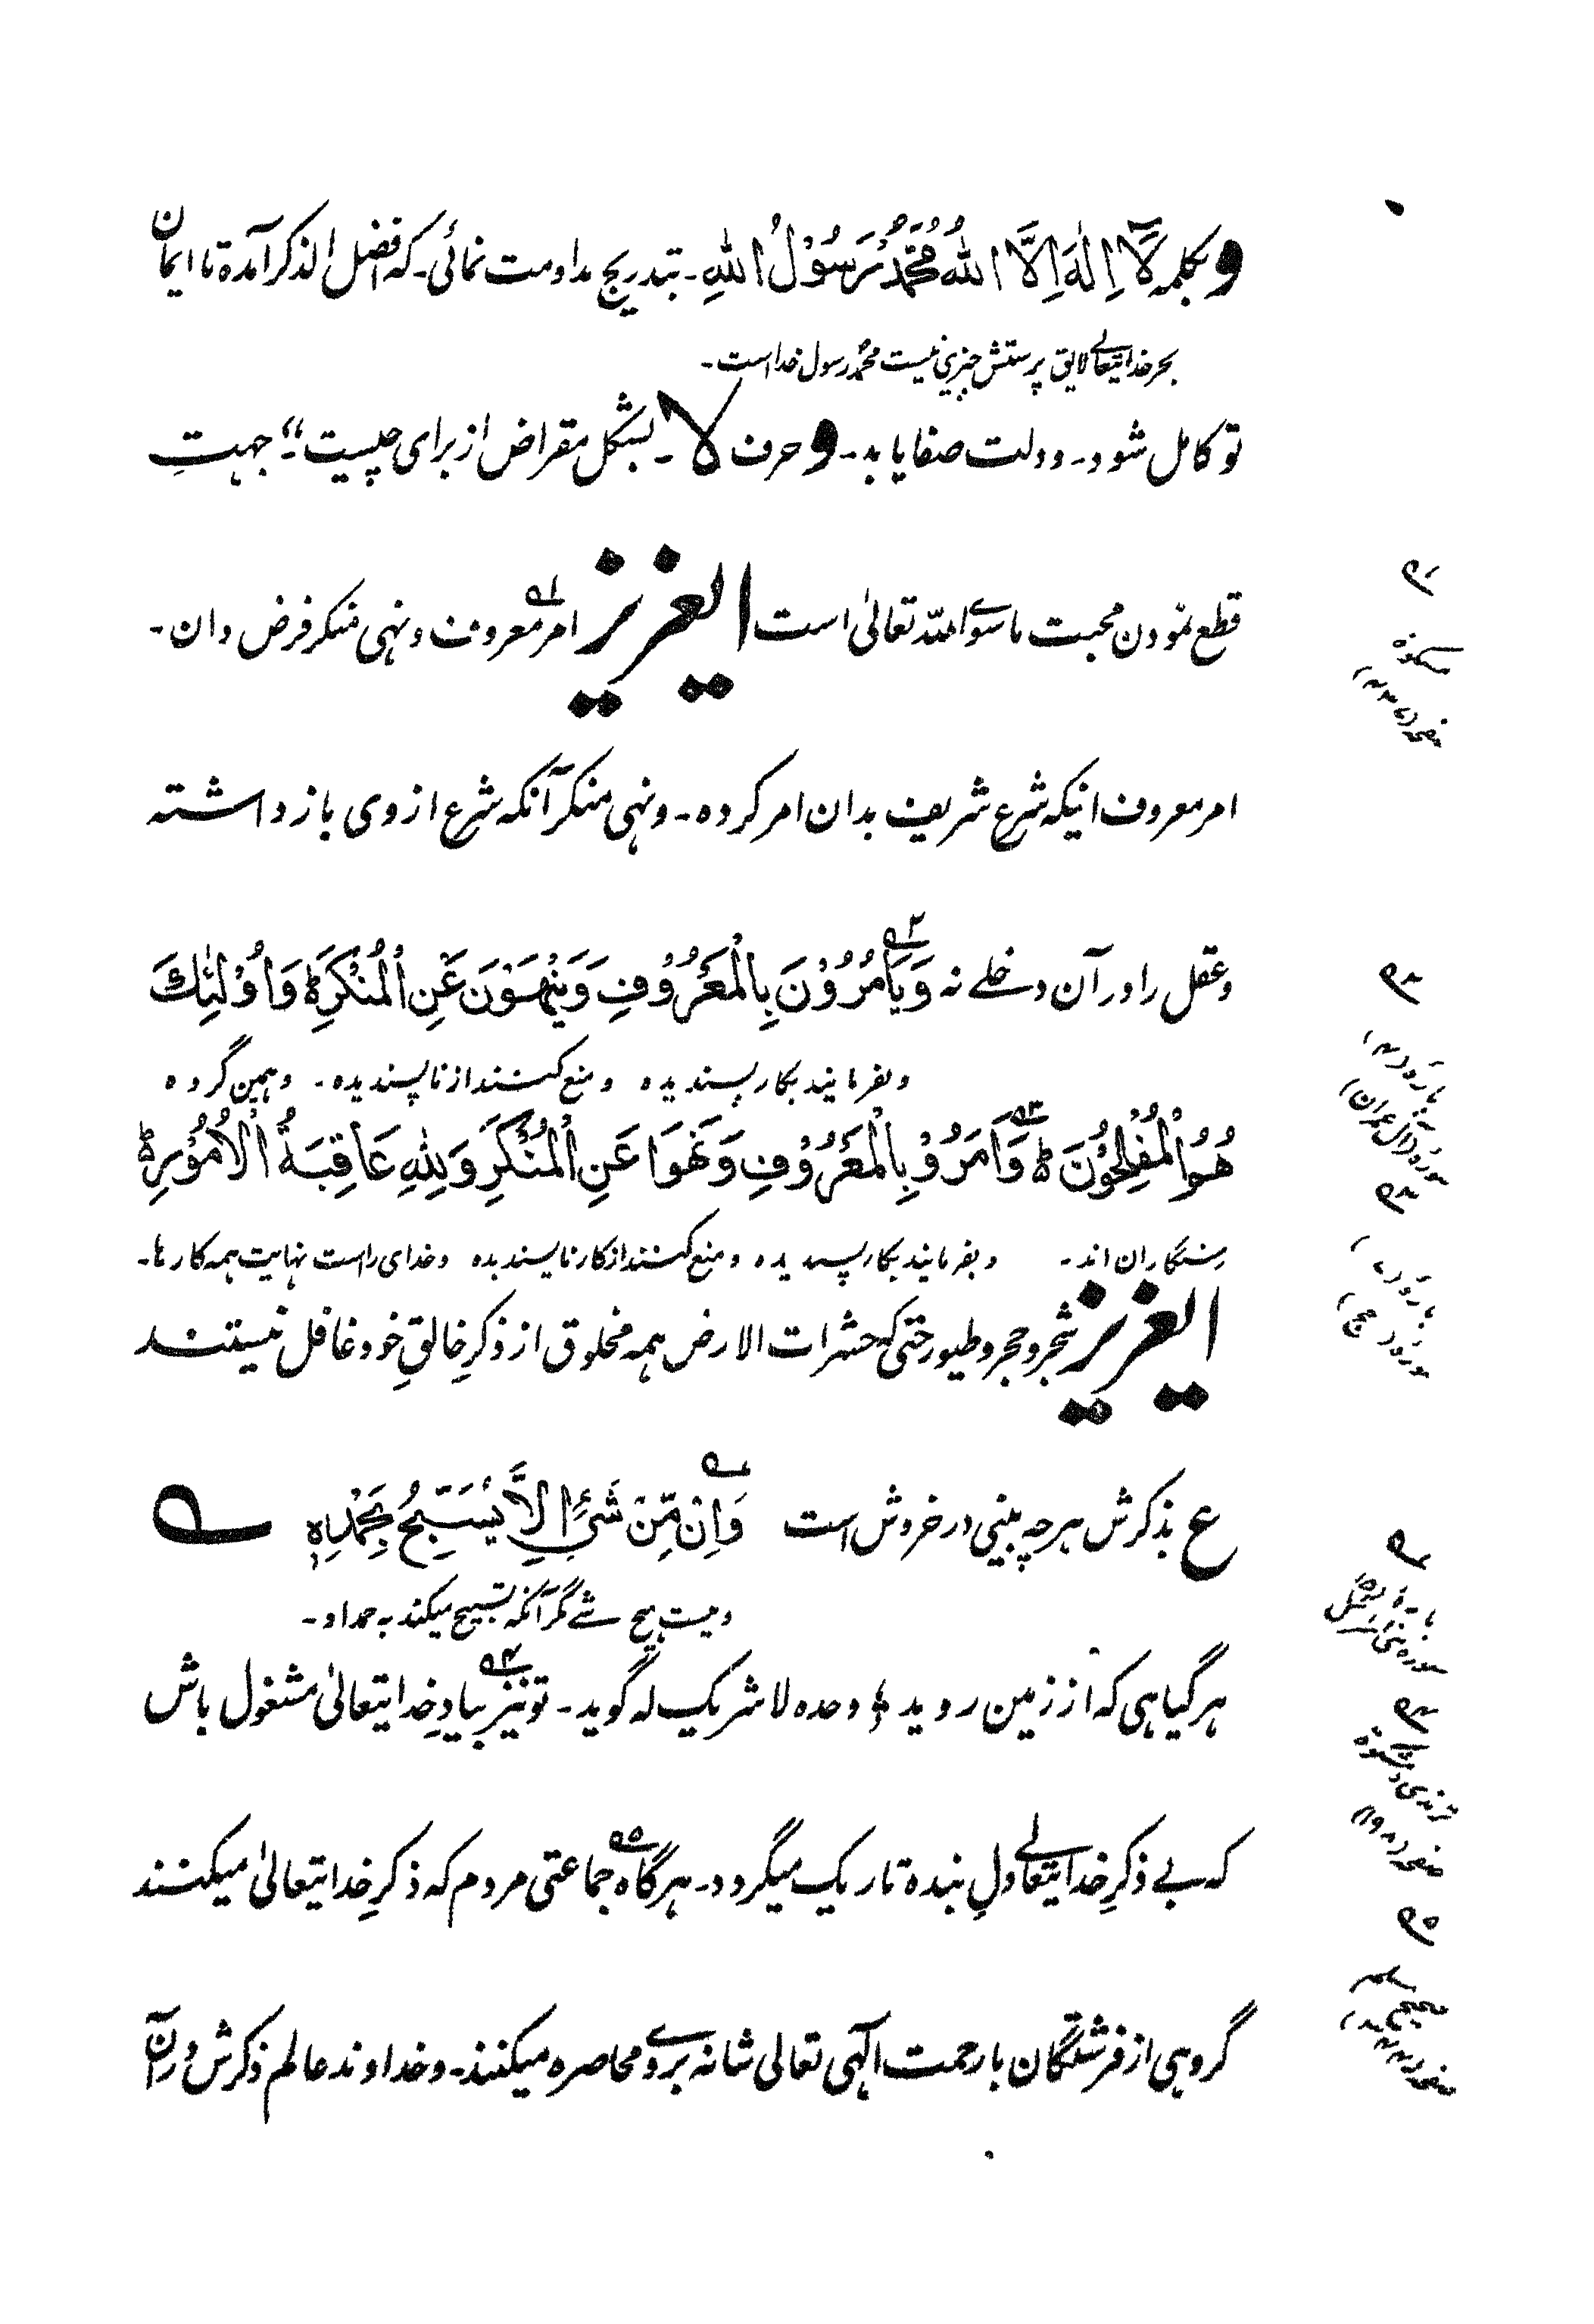 و بکلمه لَآ اِلٰهَ اِلَّا اللهُ مُحَمَّدٌ رَسُوْلُ اللهِ۔ بتدریج مداومت نمائی۔ که افضل الذکر آمده تا ایمان
بجز خدایتعالے لایق پرستش چیزی نیست محمدؐ رسول خداست۔
تو کامل شود۔ و دولت صفا یابد۔ و حرف لا۔ بشکل مقراض از برای چیست؟ جهتِ
قطع نمودن محبت ماسوے الله تعالیٰ است العزیز امر معروف و نہی منکر فرض دان۔
امر معروف انیکه شرع شریف بدان امر کرده۔ و نہی منکر آنکه شرع از وی باز داشته
و عقل را در آن دخلے نه وَيَأمُرُوْنَ بِالْمَعْرُوْفِ وَيَنْهَوْنَ عَنِ الْمُنْكَرِ ؕ وَاُوْلٰئِكَ
و بفرمایند بکار پسندیده و منع کنند از ناپسندیده۔ و همین گروه
هُمُ الْمُفْلِحُوْنَ ؕ وَاَمَرُوْ بِالْمَعْرُوْفِ وَنَهَوَا عَنِ الْمُنْكَرِ وَلِلهِ عَاقِبَةُ الْاُمُوْرِ ؕ
رستگاران اند۔ و بفرمایند بکار پسندیده و منع کنند از کار ناپسندیده و خدای راست نهایت همه کارها۔
العزیز شجر و حجر و طیور حتی که حشرات الارض همه مخلوق از ذکرِ خالقِ خود غافل نیستند
ع بذکرش هر چه بینی در خروش است وَاِنْ مِّنْ شَيْءٍ اِلَّا يُسَبِّحُ بِحَمْدِهٖ
و نیست هیچ شے مگر آنکه تسبیح میکند به حمد او۔
هر گیاهی که از زمین روید ؛ وحده لا شریک له گوید۔ تو نیز بیادِ خدایتعالیٰ مشغول باش
که بے ذکرِ خدایتعالے دلِ بنده تاریک میگردد۔ هرگاه جماعتی مردم که ذکرِ خدایتعالیٰ میکنند
گروهی از فرشتگان با رحمت الهی تعالی شانه بروے محاصره میکنند۔ و خداوند عالم ذکرش در آن
مشکوٰة
سورة آل عمران
سورة حج
سوره بنی اسرائیل
ترمذی و مشکوٰة
صحیح مسلم